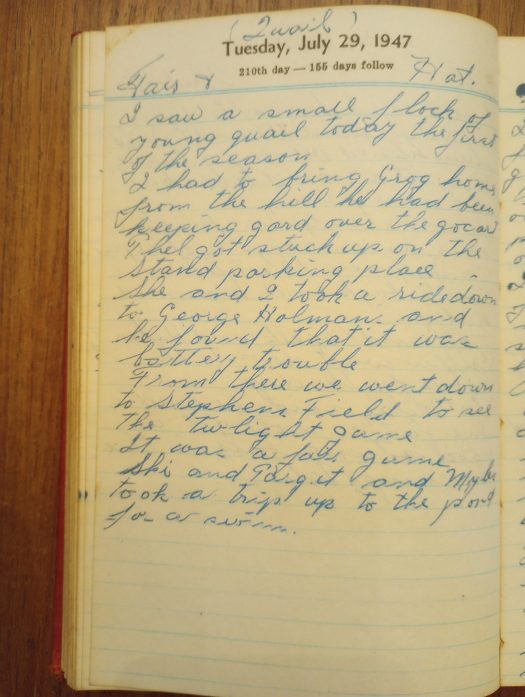 (Quail)
Tuesday, July 29, 1947
210th day — 155 days follow
Fair & Hot.
I saw a small flock of
young quail today the first
of the season
I had to bring Grog home
from the hill he had been
keeping gard over the gocar
Thel got stuck up on the
stand parking place
She and I took a ride down
to George Holmans and
he found that it was
battery trouble
From there we went down
to Stephens Field to see
The twilight game
It was a fair game
Ski and and
took a trip up to the pond
for a swim.